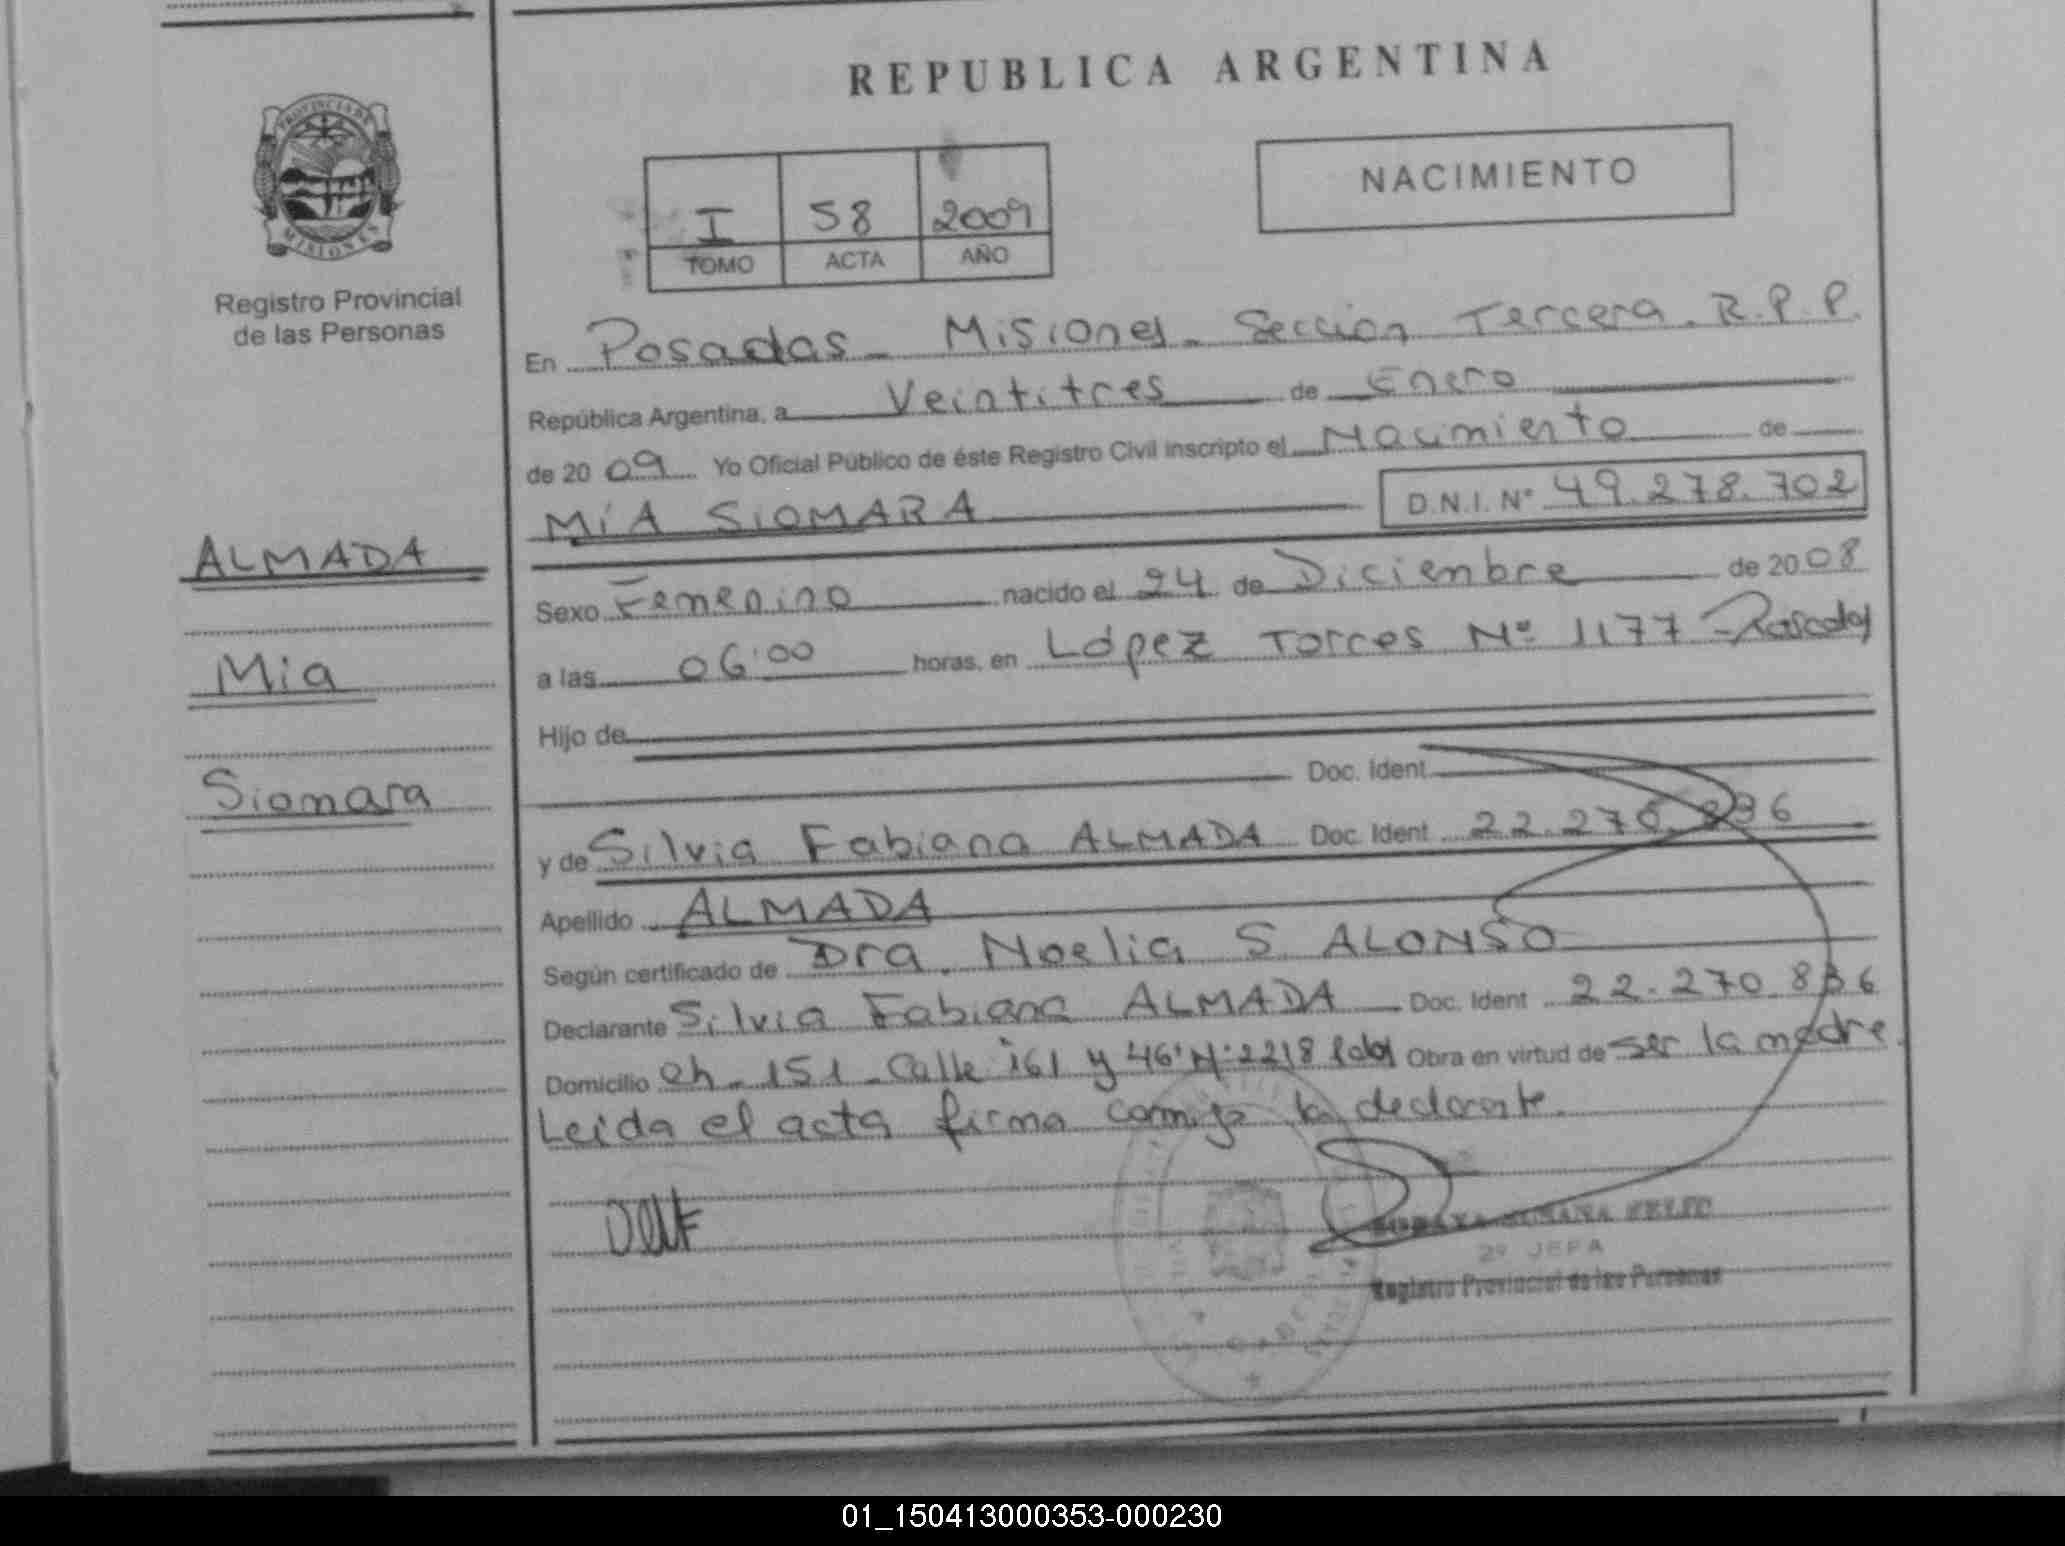 REPUBLICA ARGENTINA
PROVINCIA DE
MISIONES
Registro Provincial
de las Personas
NACIMIENTO
I 58 2009
TOMO ACTA AÑO
En Posadas - Misiones - Sección Tercera. R.P.P.
República Argentina, a Veintitres de Enero
de 2009 Yo Oficial Público de éste Registro Civil inscripto el Nacimiento de
MíA SIOMARA D.N.I. Nº 49.278.702
ALMADA
Mia
Siomara
Sexo Femenino nacido el 24 de Diciembre de 2008
a las 06:00 horas, en López Torres Nº 1177 - Posadas
Hijo de
Doc. Ident
y de Silvia Fabiana ALMADA Doc. Ident 22.270.836
Apellido ALMADA
Según certificado de Dra. Noelia S. ALONSO
Declarante Silvia Fabiana ALMADA Doc. Ident 22.270.836
Domicilio Ch. 151 - Calle 161 y 46 Nº 2218 Obra en virtud de ser la madre.
Leida el acta firma conmigo la declarante.
2º JEFA
Registro Provincial de las Personas
01_150413000353-000230